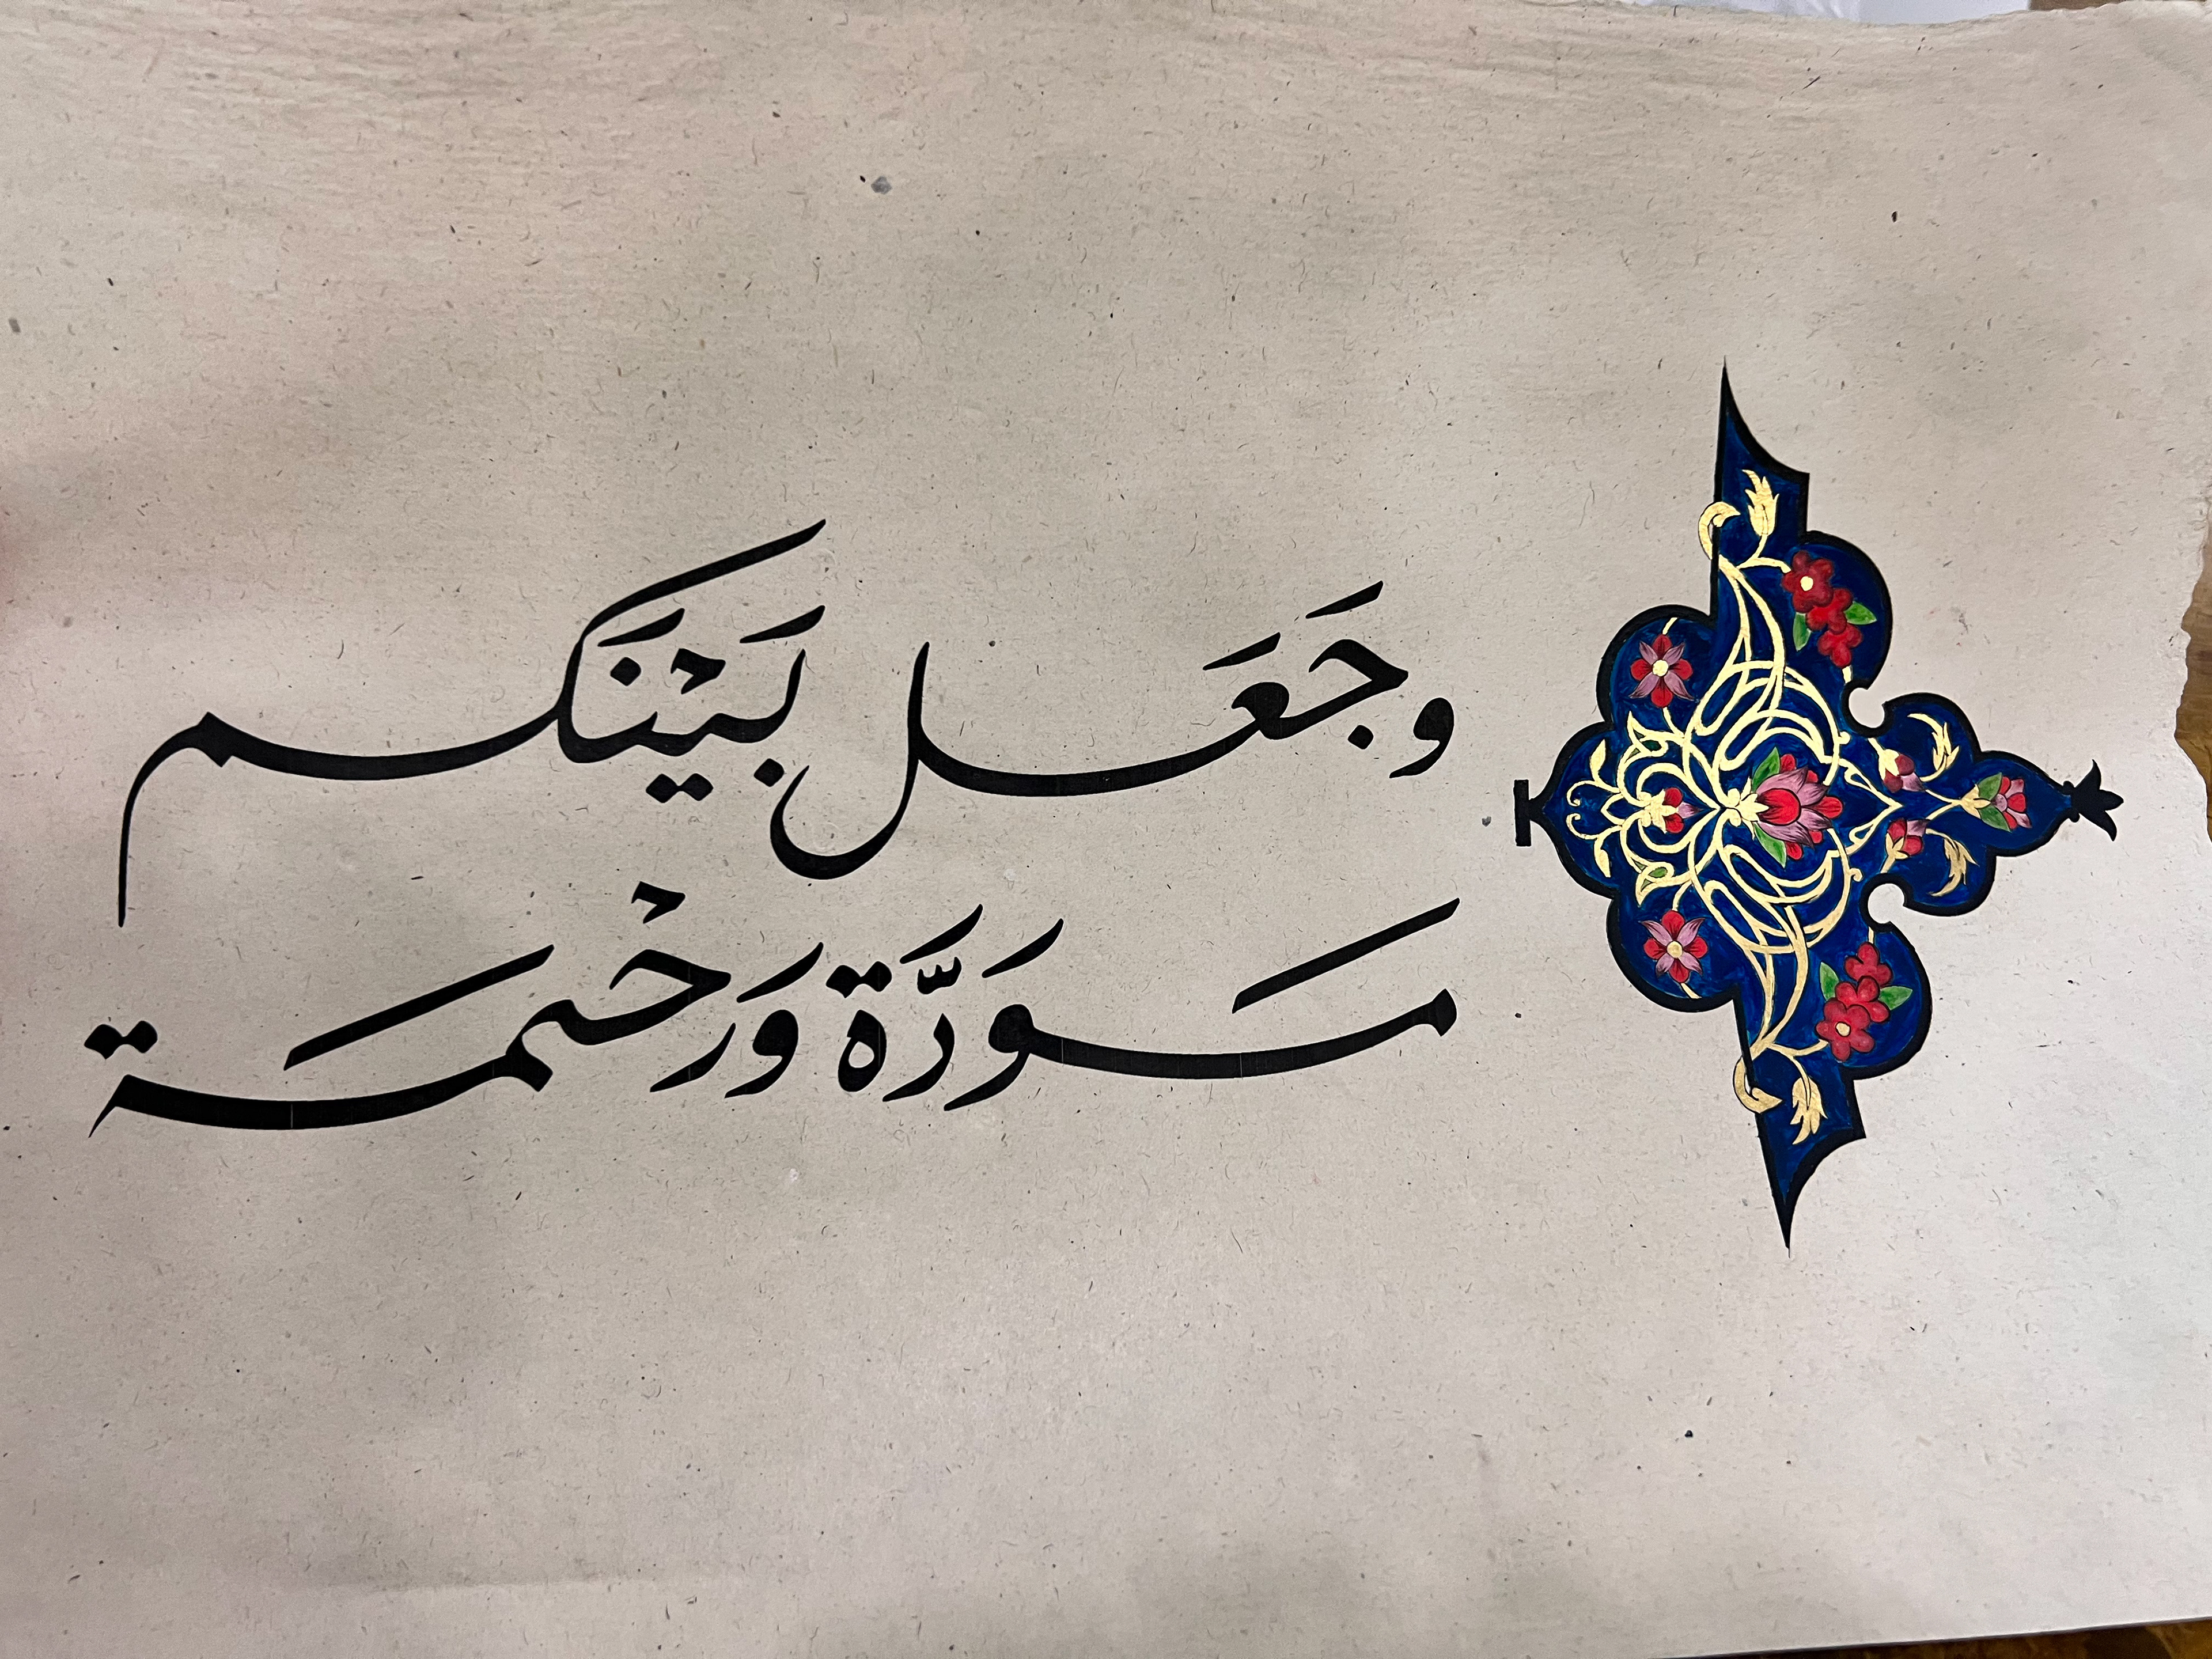 وجَعَل بَيْنَكم
مَوَدَّة وَرحْمَة